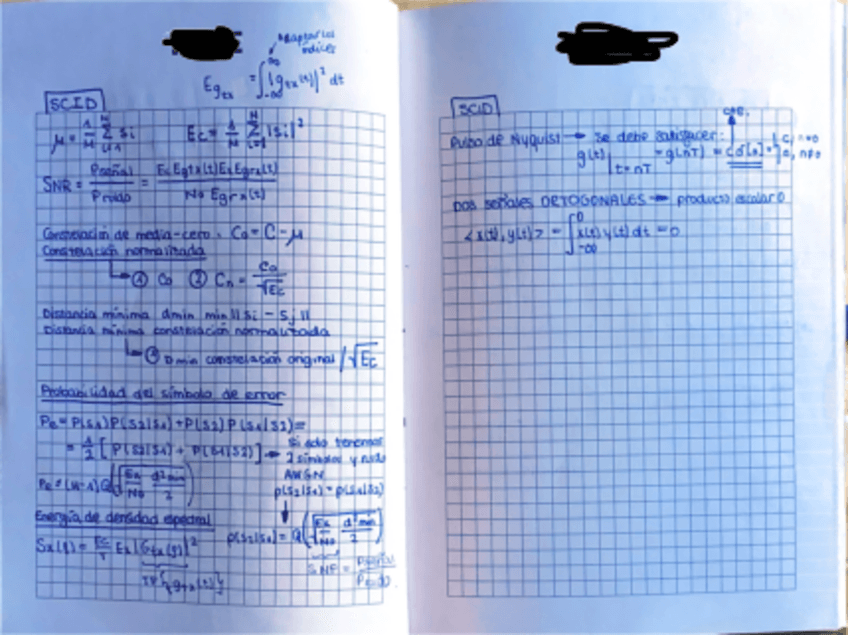 Adaptar los
índices
E_gtx = ∫_{-∞}^{∞} |g_tx(t)|² dt
SCID
μ = 1/M Σ_{i=1}^{M} si
Ec = 1/M Σ_{i=1}^{M} |si|²
SNR = Pseñal/Pruido = Ex Egtx(t) Ex Egrx(t) / No Egrx(t)
Constelación de media-cero. Co = C - μ
Constelación normalizada
① Co ② Cn = Co/√Ec
Distancia mínima dmin min||Si - Sj||
Distancia mínima constelación normalizada
Dmin constelación original / √Ec
Probabilidad del símbolo de error
Pe = P(S1)P(S2|S1) + P(S2)P(S1|S2) =
= 1/2 [P(S2|S1) + P(S1|S2)] → Si solo tenemos
2 símbolos y ruido
AWGN
p(S2|S1) = p(S1|S2)
Pe ≤ (M-1)Q(√(Ex/No d²min/2))
Energía de densidad espectral
p(S2|S1) = Q(√(Ex/No d²min/2))
Sx(f) = Ec/T Ex |Gtx(f)|²
TF{gtx(t)}
SNR = Pseñal/Pruido
SCID
cte.
Pulso de Nyquist → Se debe satisfacer:
g(t)|t=nT = g(nT) = cδ[n] = { c, n=0
0, n≠0
Dos señales ORTOGONALES → producto escalar 0
<x(t), y(t)> = ∫ x(t) y(t) dt = 0